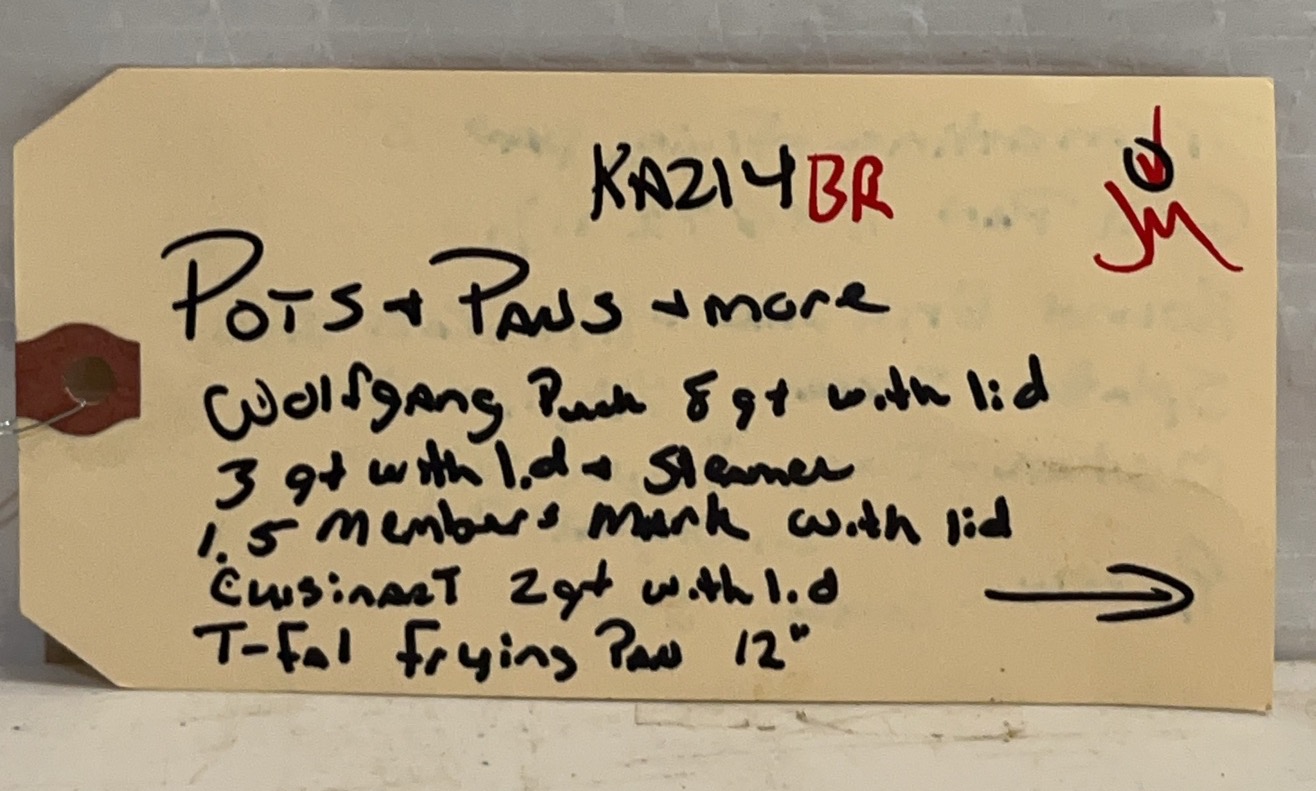 KA214BR
JM
POTS + PANS + more
Wolfgang Puck 8 qt with lid
3 qt with lid + Steamer
1.5 Members Mark with lid
CuisinarT 2qt with lid
T-fal frying Pan 12"